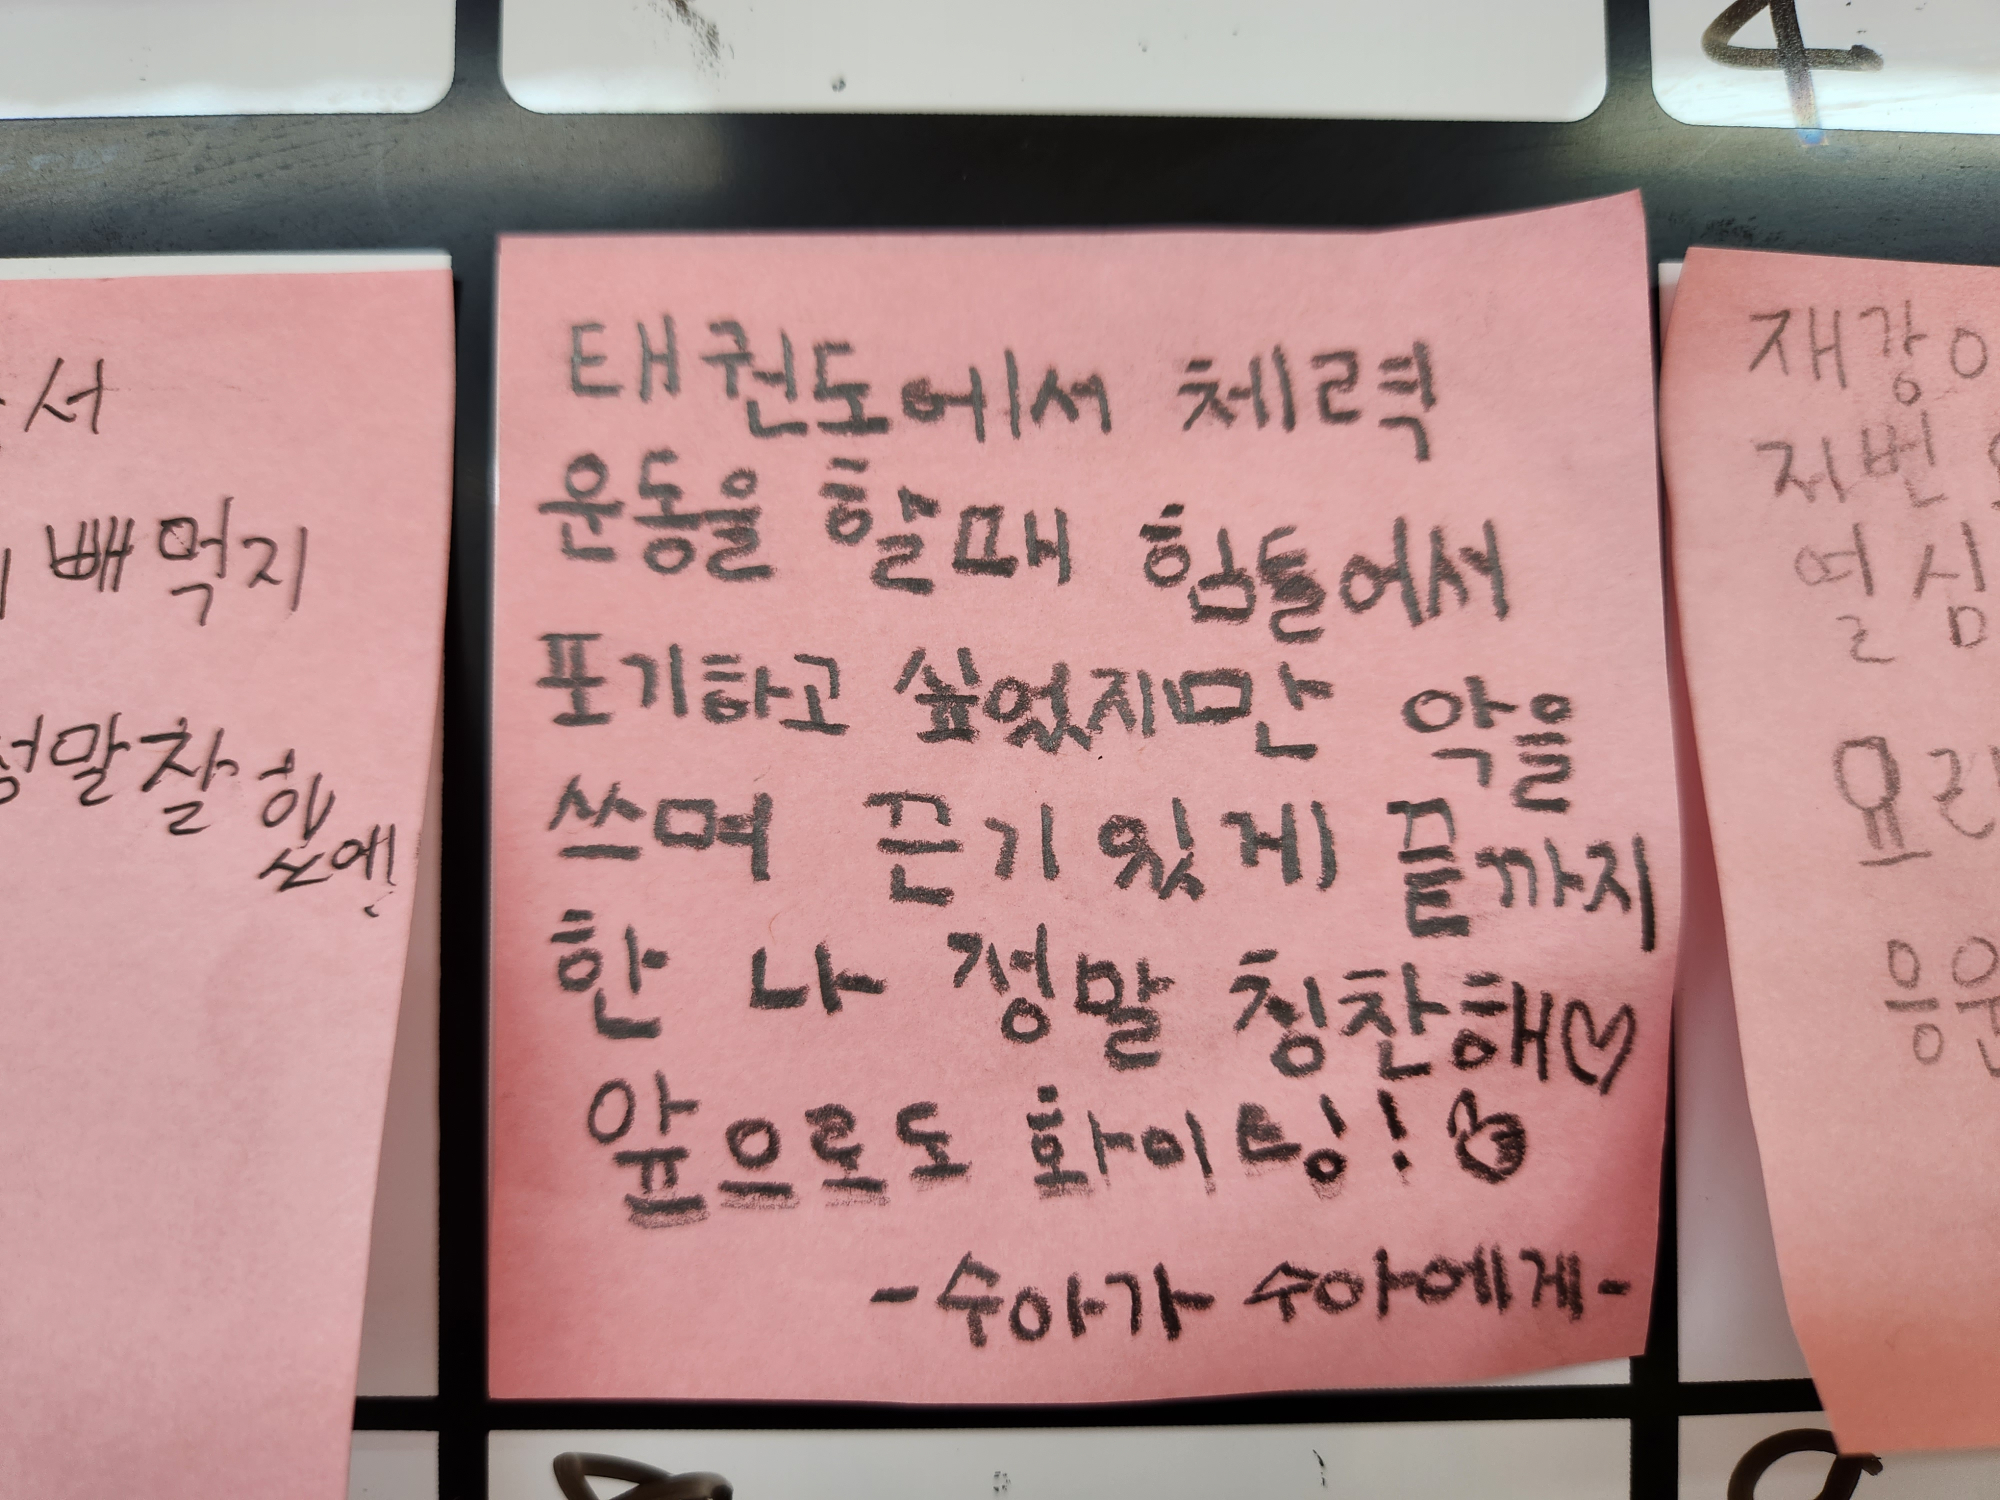 서
빼먹지
정말 잘 했
어!
태권도에서 체력
운동을 할때 힘들어서
포기하고 싶었지만 악을
쓰며 끈기있게 끝까지
한 나 정말 칭찬해♡
앞으로도 화이팅!
-수아가 수아에게-
4
재강이
저번
열심
요리
응원